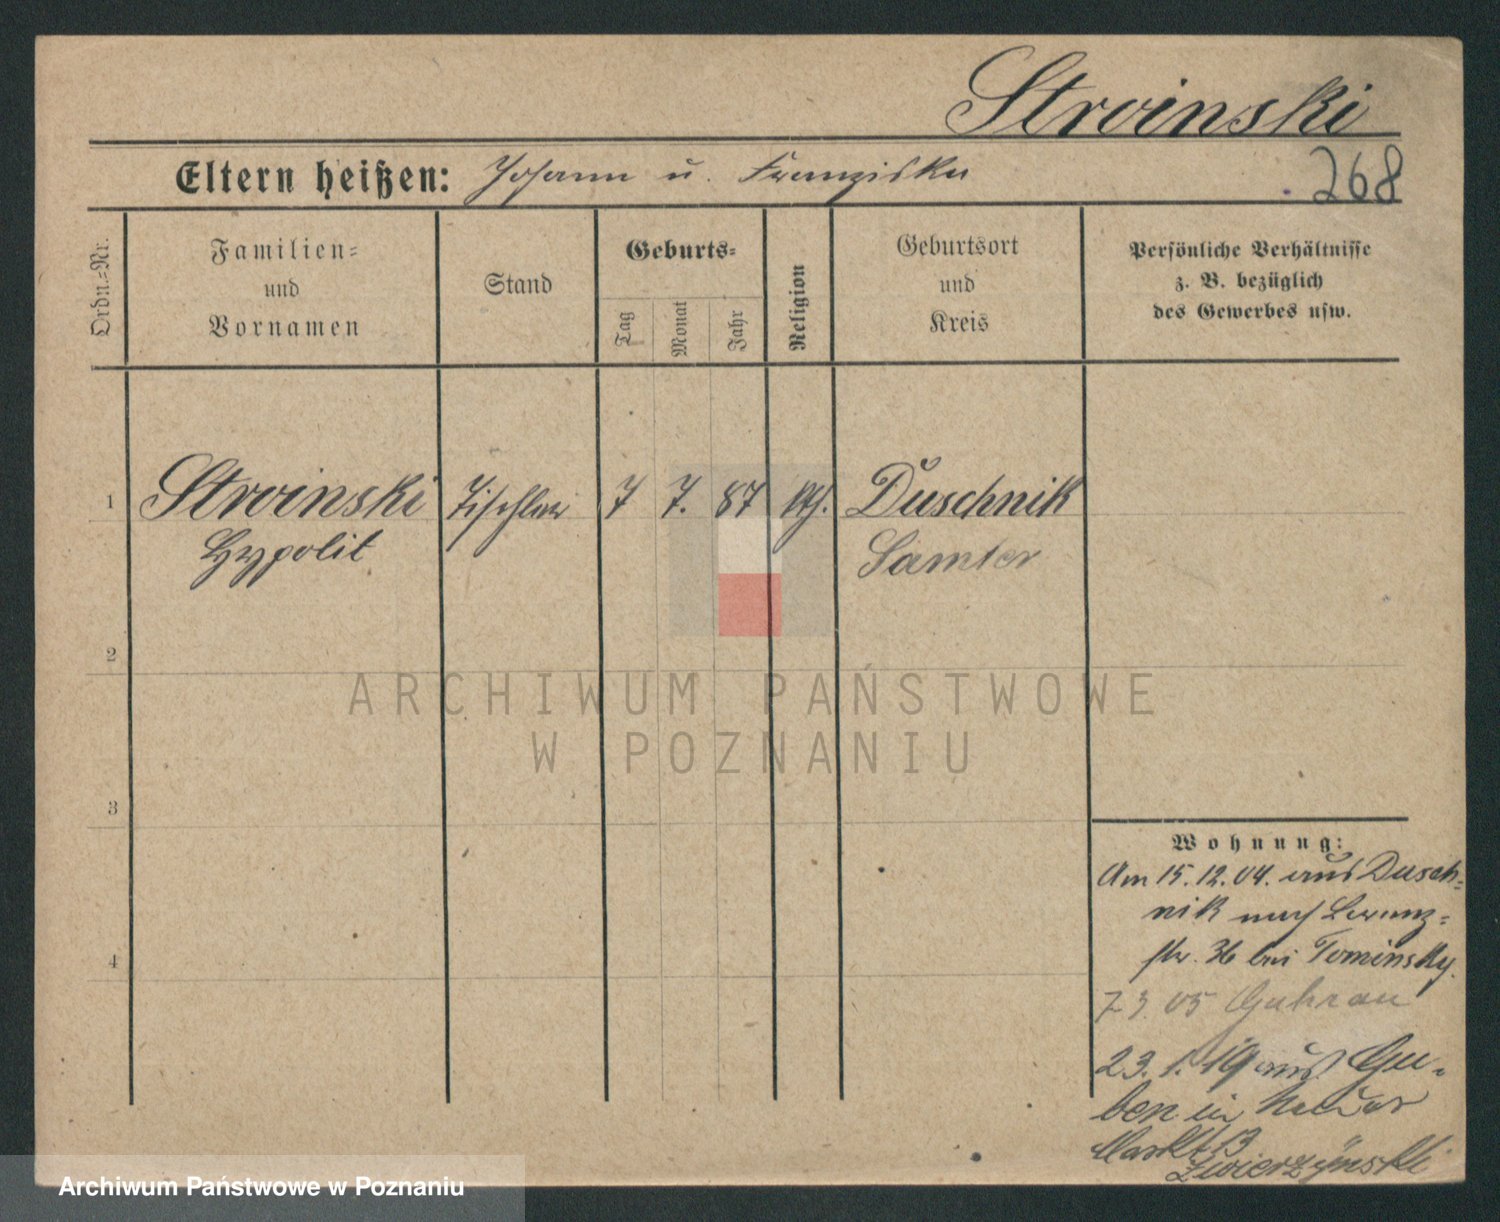 Stroinski
Eltern heißen: Johann u. Franziska
268
Ordn.=Nr.
Familien=
und
Vornamen
Stand
Geburts=
Tag
Monat
Jahr
Religion
Geburtsort
und
Kreis
Persönliche Verhältnisse
z. B. bezüglich
des Gewerbes usw.
1 Stroinski Tischler 7 7. 87 kth. Duschnik
Hypolit Samter
2
3
4
ARCHIWUM PAŃSTWOWE
W POZNANIU
Wohnung:
Am 15.12.04. aus Dusch=
nik nach
str. 36 bei Tominsky.
7 3. 05 Guhrau
23.1.19 aus Gu-
ben in
Markt 13
Zwierzynski
Archiwum Państwowe w Poznaniu